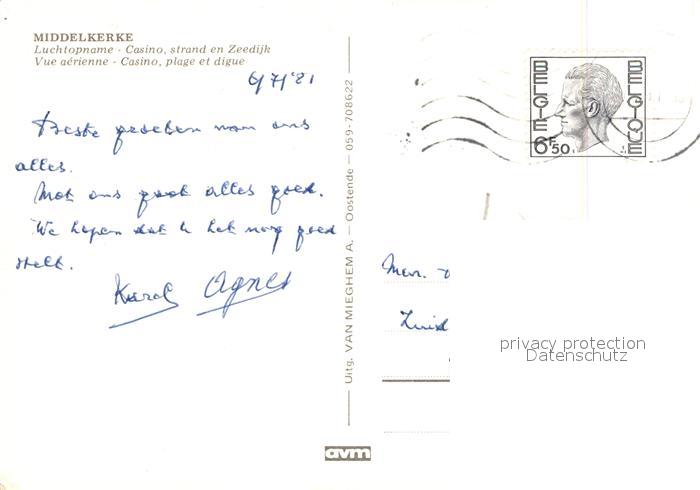 MIDDELKERKE
Luchtopname - Casino, strand en Zeedijk
Vue aérienne - Casino, plage et digue
6/7/'81
Beste groeten van ons
alles.
Met ons gaat alles goed.
We hopen dat U het nog goed
stelt.
Karel Agnes
Uitg. VAN MIEGHEM A. - Oostende - 059-708622
avm
BELGIE
BELGIQUE
6F50
Mevr.
Zuid
privacy protection
Datenschutz